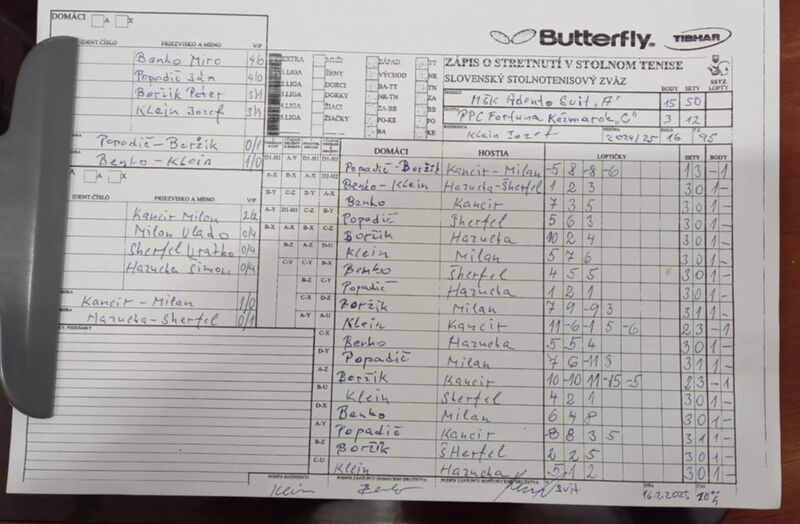 DOMÁCI A X
IDENT ČÍSLO PRIEZVISKO A MENO V/P
Benko Miro 4/0
Popadič Ján 4/0
Boržík Peter 3/1
Klein Jozef 3/1
Popadič-Boržík 0/1
Benko-Klein 1/0
A X
IDENT ČÍSLO PRIEZVISKO A MENO V/P
Kancir Milan 2/2
Milan Vlado 0/4
Sherfel Vratko 0/4
Hazucha Šimon 0/4
Kancir-Milan 1/0
Hazucha-Sherfel 0/1
POZNÁMKY
Butterfly TIBHAR
ZÁPIS O STRETNUTÍ V STOLNOM TENISE
SLOVENSKÝ STOLNOTENISOVÝ ZVÄZ
EXTRA
1.LIGA ŽENY
2.LIGA DORCI
3.LIGA DORKY
4.LIGA ŽIACI
5.LIGA ŽIAČKY
ZÁPAD TT
VÝCHOD NR
BA-TT ZA
NR-TN
ZA-BB
PO-KE
BA KE
BODY SETY
MŠK Adento Svit "A" 15 50
PPC Fortuna Kežmarok "C" 3 12
Klein Jozef 2024/25 16 95
DOMÁCI HOSTIA LOPTIČKY SETY BODY
Popadič-Boržík Kancir-Milan -5 8 -8 -6 1 3 -1
Benko-Klein Hazucha-Sherfel 1 2 3 3 0 1-
Benko Kancir 7 3 5 3 0 1-
Popadič Sherfel 5 6 3 3 0 1-
Boržík Hazucha 10 2 4 3 0 1-
Klein Milan 5 7 6 3 0 1-
Benko Sherfel 4 5 5 3 0 1-
Popadič Hazucha 1 2 1 3 0 1-
Boržík Milan 7 9 -9 3 3 1 1-
Klein Kancir 11 -6 -1 5 -6 2 3 -1
Benko Hazucha 5 5 4 3 0 1-
Popadič Milan 7 6 -11 3 3 1 1-
Boržík Kancir 10 -10 11 -15 -5 2 3 -1
Klein Sherfel 4 2 1 3 0 1-
Benko Milan 6 4 8 3 0 1-
Popadič Kancir -8 8 3 5 3 1 1-
Boržík SHerfel 2 2 5 3 0 1-
Klein Hazucha 5 1 2 3 0 1-
PODPIS ROZHODCU PODPIS ZÁSTUPCU DOMÁCEHO DRUŽSTVA PODPIS ZÁSTUPCU HOSŤUJÚCEHO DRUŽSTVA
Klein Benko Svit 16.2.2025